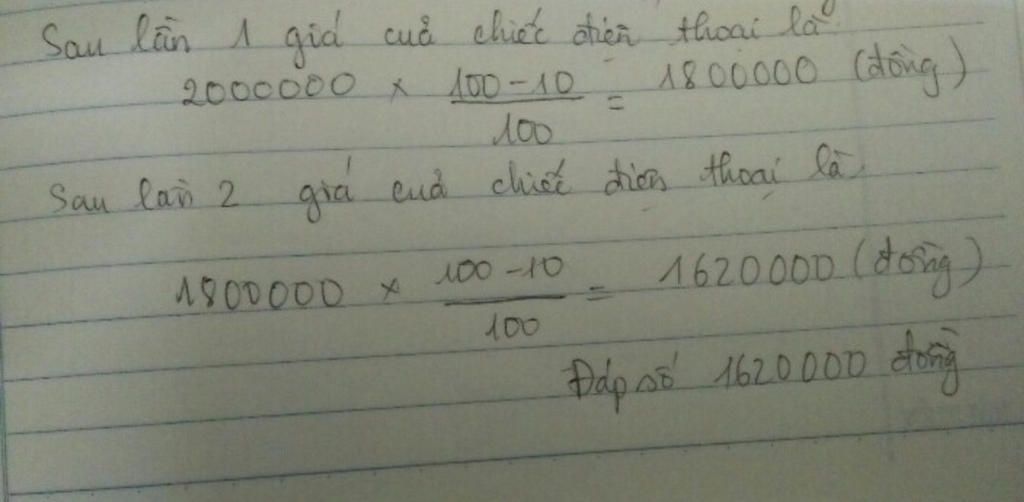 Sau lần 1 giá cuả chiếc điện thoại là
2000000 × (100 - 10)/100 = 1800000 (đồng)
Sau lần 2 giá cuả chiếc điện thoại là
1800000 × (100 - 10)/100 = 1620000 (đồng)
Đáp số 1620000 đồng